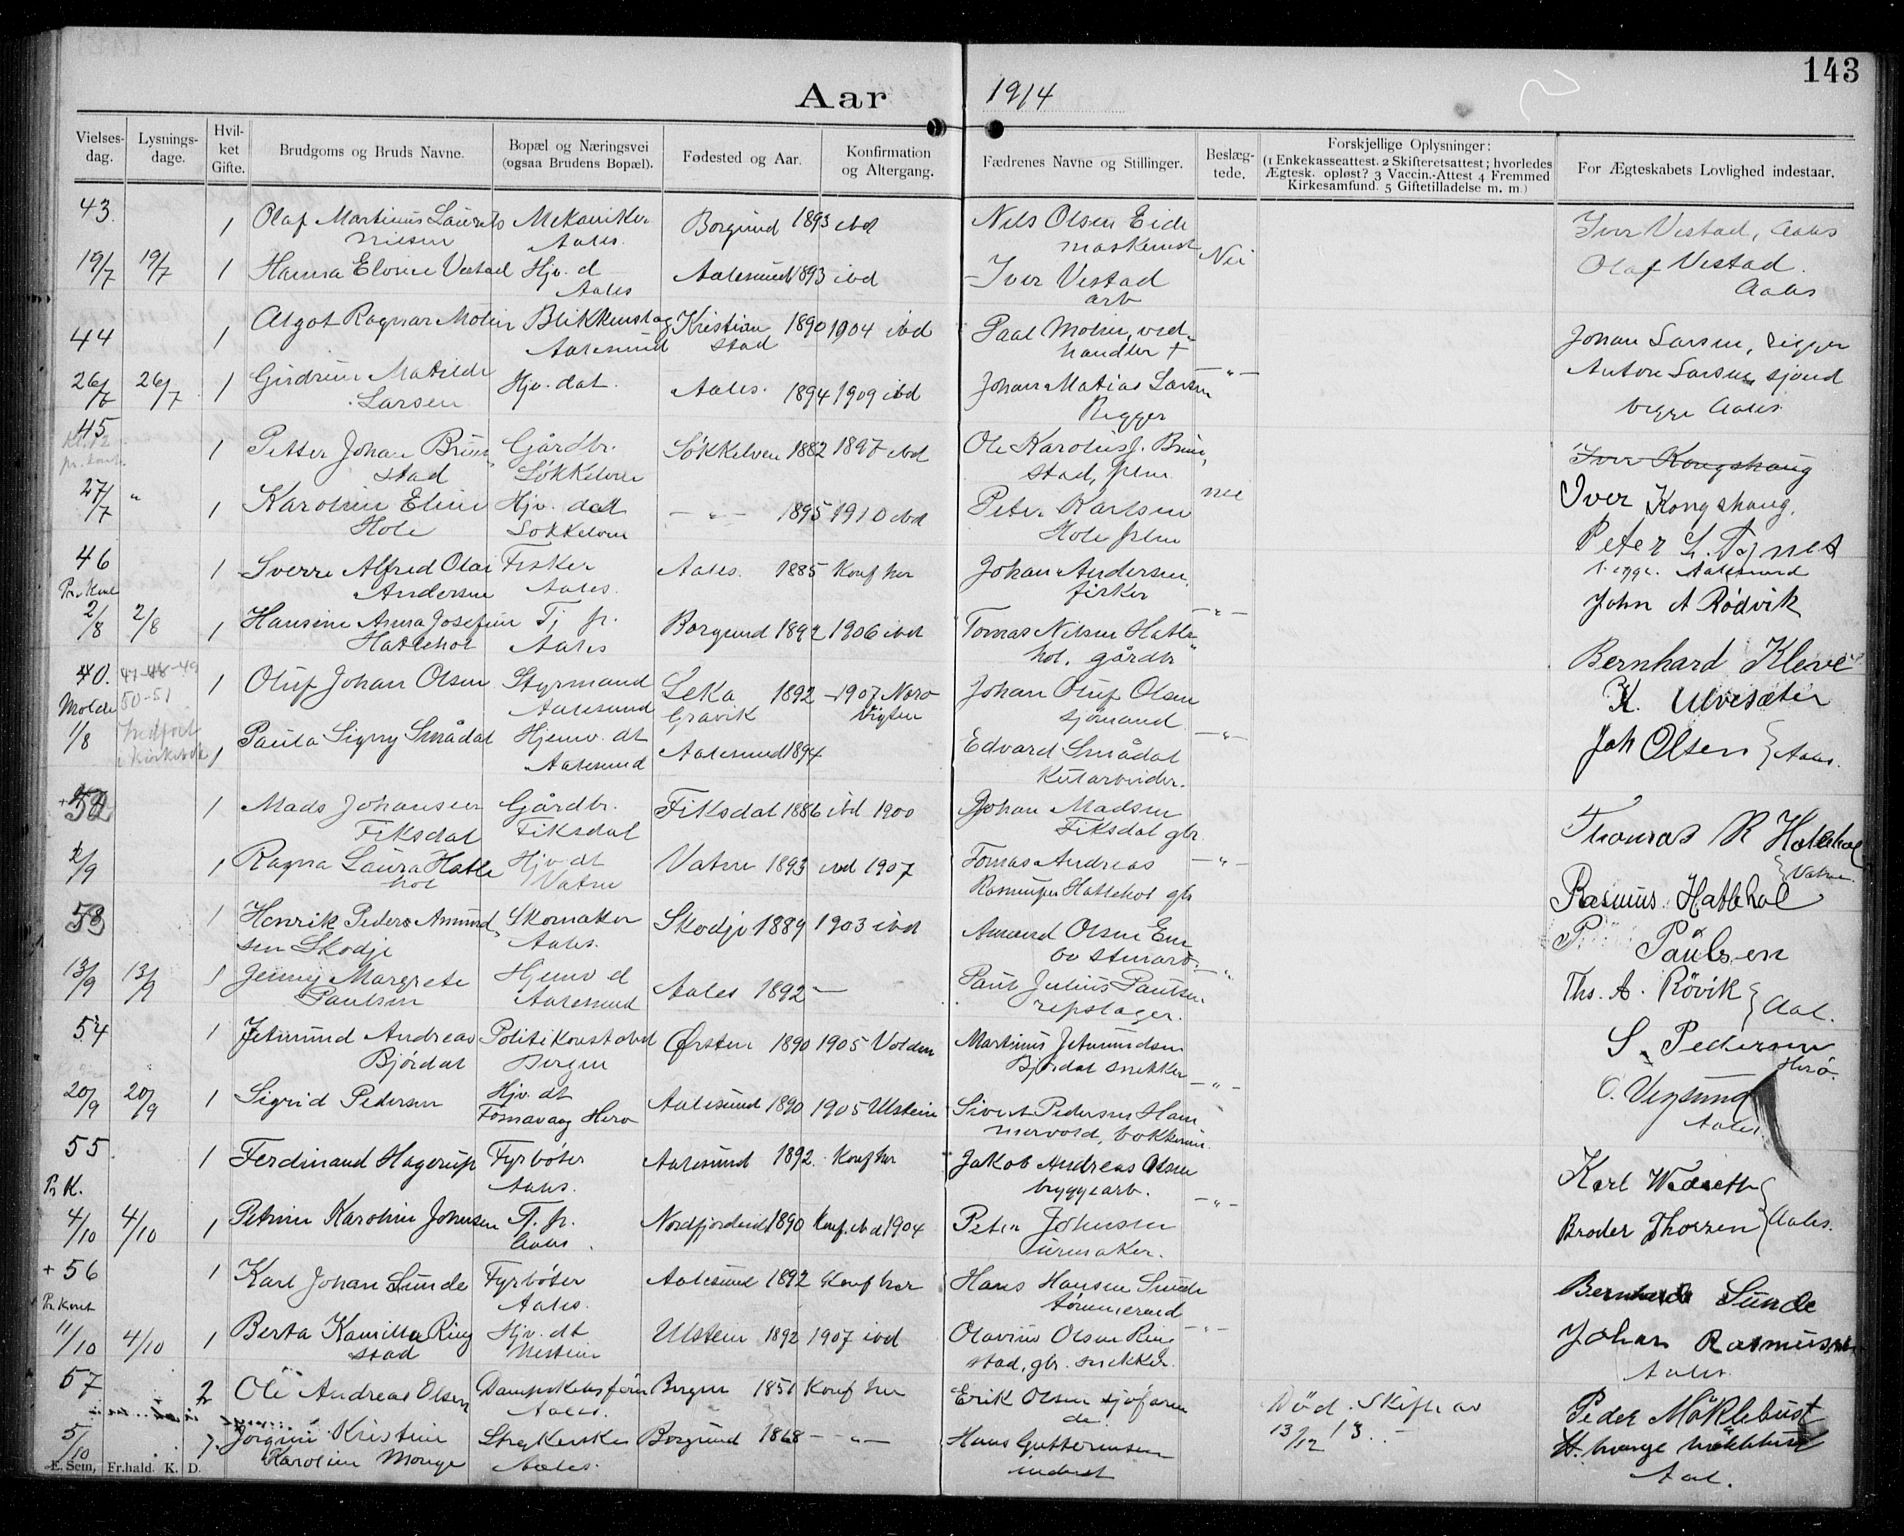 143
Aar 1914
Vielses-dag. Lysnings-dage. Hvil-ket Gifte. Brudgoms og Bruds Navne. Bopæl og Næringsvei (ogsaa Brudens Bopæl). Fødested og Aar. Konfirmation og Altergang. Fædrenes Navne og Stillinger. Beslæg-tede. Forskjellige Oplysninger: (1 Enkekasseattest. 2 Skifteretsattest; hvorledes Ægtesk. opløst? 3 Vaccin.-Attest 4 Fremmed Kirkesamfund. 5 Giftetilladelse m. m.) For Ægteskabets Lovlighed indestaar.
43. 1 Olaf Martinus Laurets Mekaniker Borgund 1893 ibd Nils Olsen Eide Iver Vestad, Aales
Nilsen Aales. maskinist Nei
19/7 19/7 1 Hanna Elvine Vestad Hjv. d Aalesund 1893 ibd Iver Vestad Olaf Vestad.
Aales arb Aales
44 1 Algot Ragnar Molin Blikkenslag Kristian 1890 1904 ibd Paal Molin, ved- Johan Larsen, Rigger
Aalesund stad handler †
26/7 26/7 1 Gudrun Matilde Hjv. dat. Aales. 1894 1909 ibd Johan Matias Larsen — " — Anton Larsen sjømd
Larsen Rigger begge Aales.
45 1 Petter Johan Brun Gårdbr. Søkkelven 1882 1897 ibd Ole Karolus J. Brun, Iver Kongshaug
stad Søkkelven stad,
27/7 " 1 Karoline Eline Hjv. datt — " — 1895 1910 ibd Peter Karlsen nei Iver Kongshaug.
Hole Søkkelven Hole
46 1 Sverre Alfred Olai Fisker Aales. 1885 Konf her Johan Andersen, Peter L. Tynes
Andersen Aales. fisker begge. Aalesund
2/8 2/8 1 Hansine Anna Josefine Tj. p. Borgund 1892 1906 ibd Tomas Nilsen Hatle — " — John A Rødvik
Hatlehol Aales hol. gårdbr
40. 47-48-49 1 Oluf Johan Olsen Styrmand Leka 1892 1907 Nærø Johan Oluf Olsen Bernhard Kleve
Molde 50-51 Aalesund Gravik Vigten sjømand K. Ulvesæter
1/8 Indført i Kirkebok 1 Paula Signy Smådal Hjemv. dt Aalesund 1894 Edvard Smådal — " — Joh Olsen } Aales.
Aalesund Kularbeider.
+ 52 1 Mads Johansen Gårdbr. Fiksdal 1886 ibd 1900 Johan Madsen Thomas R Hatlehol
Fiksdal Fiksdal Fiksdal gbr
2/9 1 Ragna Laura Hatle Hjv dt Vatne 1893 ibd 1907 Tomas Andreas — " — } Vatne.
hol Vatne Rasmussen Hattehol gbr Rasmus Hattehol
53 1 Henrik Peders Amund, Skomaker Skodje 1889 1903 ibd Amund Olsen P. Paulsen
sen Skodje Aales.
13/9 13/9 1 Jenny Margrete Hjemv d Aales 1892 — Paul Julius Paulsen — " Ths. A. Røvik } Aal.
Paulsen Aalesund repslager.
54 1 Jetmund Andreas Politikonstabel Ørsten 1890 1905 Volden Martinus Jetmundsen S. Pedersen
Bjørdal Bergen Bjørdal snekker — " — Herø.
20/9 20/9 1 Sigrid Pedersen Hjv. dt Aalesund 1890 1905 Ulstein Sivert Pedersen Ham O. Vegsund
Fosnavaag Herø mervold, bøkker Aales.
55 1 Ferdinand Hagerup Fyrbøter Aalesund 1892. Konf her Jakob Andreas Olsen Karl
Pr K. Aales. bryggearb. — " —
4/10 4/10 1 Petrine Karoline Johnsen Tj. p. Nordfjordeid 1890 Konf. ibd 1904 Peter Johnsen Broder Thorzen } Aales.
Aales. urmaker.
+ 56 1 Karl Johan Sunde Fyrbøter Aalesund 1892 Konf her Hans Hansen Sunde Bernhard Sunde
Pr. Kont Aales. tømmermd
11/10 4/10 1 Berta Kamilla Ring Hjv. dt Ulstein 1892 1907 ibd Olavius Olsen Ring — " — Johan Rasmussen
stad Ulstein stad, gbr. snekker. Aales.
57 2 Ole Andreas Olsen Bergen 1851 Konf her Erik Olsen sjøfaren Død. Skifte av Peder Mäklebust
Aales. de. 13/12 13. —
5/10 Jørgine Kristine Borgund 1868 — " — Hans Guttormsen
Karoline Monge Aales. inderst Aal.
E. Sem, Fr.hald. K. D.